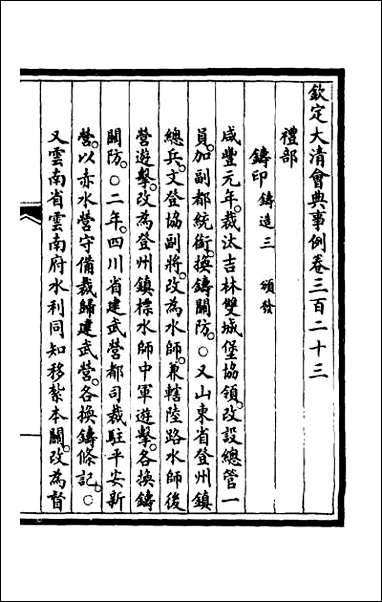 欽定大清會典事例卷三百二十三
禮部
鑄印鑄造三　頒發
咸豐元年。裁汰吉林雙城堡協領。改設總管一
員。加副都統銜。換鑄關防。○又山東省登州鎮
總兵。文登協副將。改為水師。兼轄陸路水師後
營遊擊。改為登州鎮標水師中軍遊擊。各換鑄
關防。○二年。四川省建武營都司裁駐平安新
營。以赤水營守備裁歸建武營。各換鑄條記。○
又雲南省雲南府水利同知移紮本關。改為督